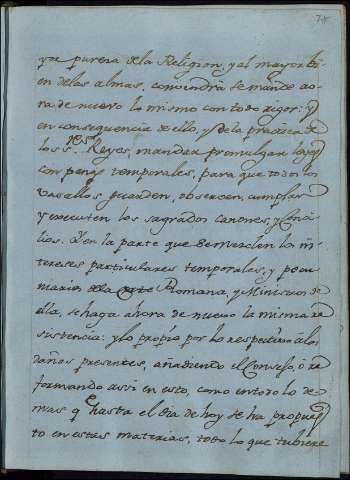 yor pureza dela Religion, y al mayor bi
en delas almas, convendrà se mande ao
ra de nuevo lo mismo con todo rigor: y
en consequencia de ello, y dela practica de
los SS. Reyes, mandar promulgar leyes
con penas temporales, para que todos los
vasallos guarden, observen, cumplan
y executen los sagrados canones, y Conci
lios. Y en la parte que se mezclen los in
tereses particulares temporales, y pecu
niarios dela Romana, y Ministros de
ella, se haga ahora de nuevo la misma re
sistencia: y lo propio por lo respectivo àlos
daños presentes, añadiendo el Consejo, ò re
formando assi en esto, como en todo lo de
mas q hasta el dia de hoy se ha propues
to en estas materias, todo lo que tubiere